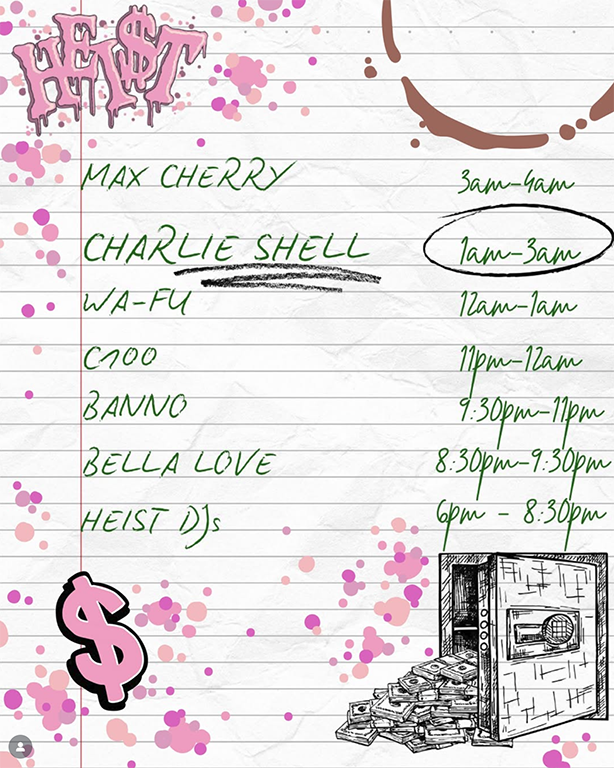 HEI$T
MAX CHERRY 3am-4am
CHARLIE SHELL 1am-3am
WA-FU 12am-1am
C100 11pm-12am
BANNO 9:30pm-11pm
BELLA LOVE 8:30pm-9:30pm
HEIST DJs 6pm - 8:30pm
$